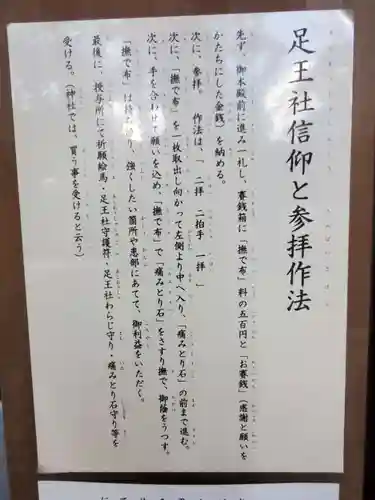 足王社信仰と参拝作法
先ず、御本殿前に進み一礼し、賽銭箱に「撫で布」料の五百円と「お賽銭」（感謝と願いを
かたちにした金銭）を納める。
次に、参拝。　作法は、「　二拝　二拍手　一拝　」
次に、「撫で布」を一枚取出し向かって左側より中へ入り、「痛みとり石」の前まで進む。
次に、手を合わせて願いを込め、「撫で布」で「痛みとり石」をさすり撫で、御陰をうつす。
「撫で布」は持ち帰り、強くしたい箇所や患部にあてて、御利益をいただく。
最後に、授与所にて祈願絵馬・足王社守護符・足王社わらじ守り・痛みとり石守り等を
受ける。（神社では、買う事を受けると云う）